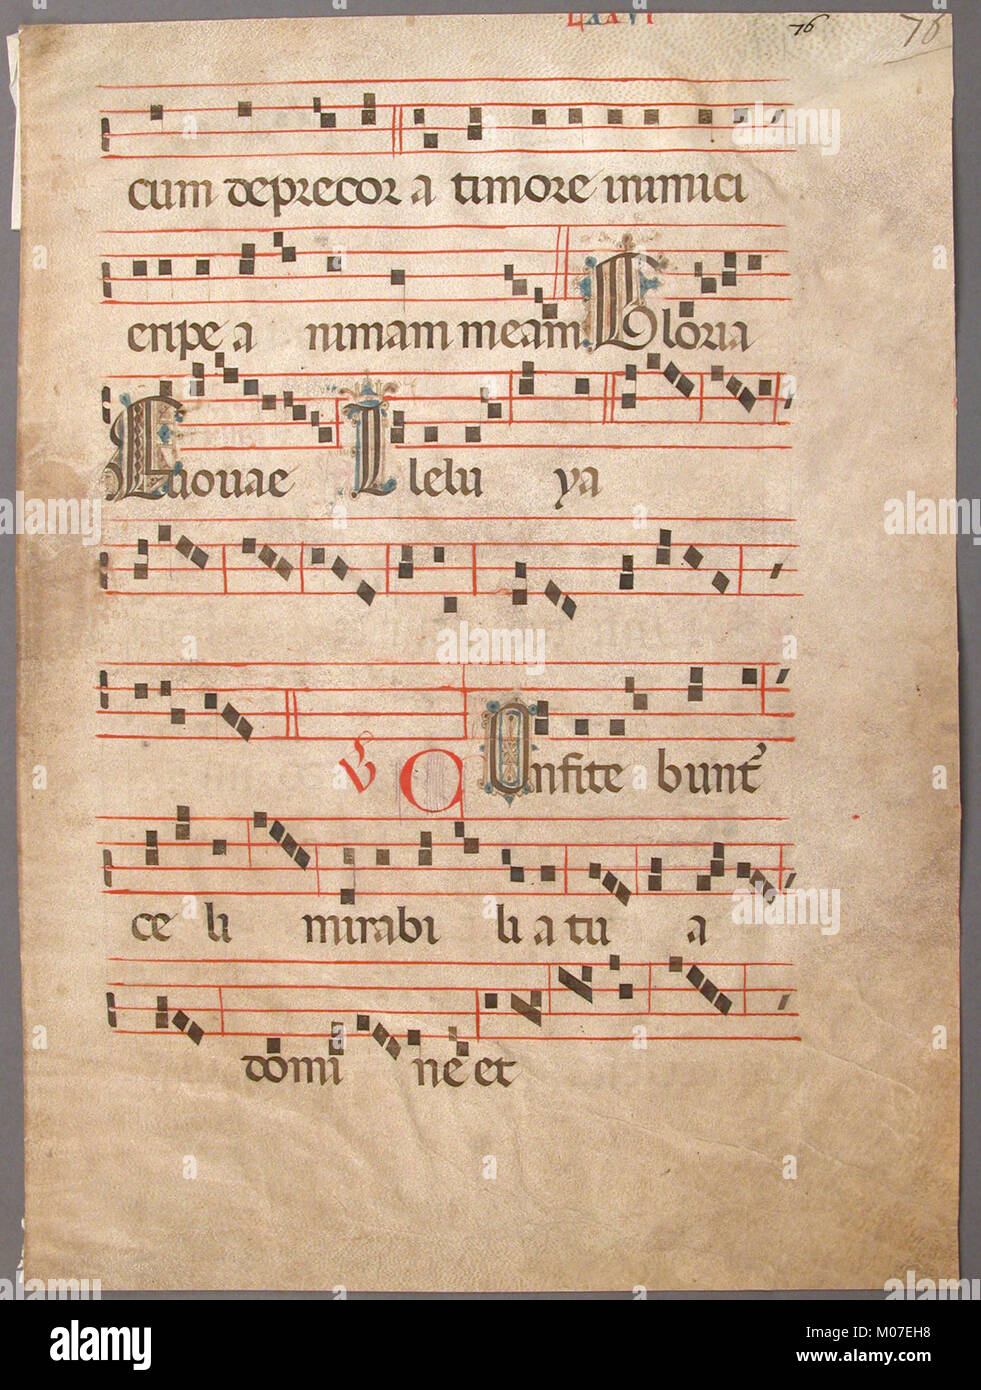 LXXVI 76 76
cum deprecor a timore inimici
eripe a nimam meam Gloria
Euouae Llelu ya
℣ COnfite bunt᾽
ce li mirabi li a tu a
domi ne et
alamy
Image ID: M07EH8
www.alamy.com